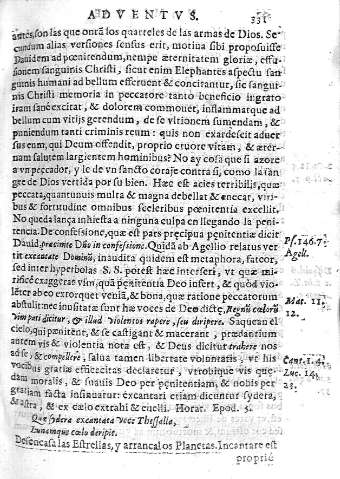 ADVENTVS. 331
antes, son las que onrã los quarteles de las armas de Dios. Se-
cundum alias versiones sensus erit, motiua sibi proposuisse
Dauidem ad pœnitendum, nempè æternitatem gloriæ, effu-
sionem sanguinis Christi, sicut enim Elephantes aspectu san-
guinis humani ad bellum efferuent & concitantur, sic sangui-
nis Christi memoria in peccatore tanto beneficio ingrato
iram sanè excitat, & dolorem commouet, inflammatque ad
bellum cum vitijs gerendum, de se vltionem sumendam, &
puniendum tanti criminis reum: quis non exardescit aduer
sus eum, qui Deum offendit, proprio cruore vitam, & æter-
nam salutem largientem hominibus? No ay cosa que si azore
a vn peccador, y le de vn sancto coraje contra si, como la san-
gre de Dios vertida por su bien. Hæc est acies terribilis, quæ
peccata, quantumuis multa & magna debellat & enecat, viri-
bus & fortitudine omnibus sceleribus pœnitentia excellit.
No queda lança inhiesta a ninguna culpa en llegando la peni-
tencia. De confessione, quæ est pars præcipua pœnitentiæ dicit
Dauid, præcinite Deo in confessione. Quidã ab Agellio relatus ver
tit excantate Dominũ, inaudita quidem est metaphora, fateor,
sed inter hyperbolas S. S. potest hæc inseri, vt quæ mi-
rificè exaggerat vim, quã pœnitentia Deo insert, & quòd vio-
lẽter ab eo extorquet veniã, & bona, quæ ratione peccatorum
abstulit: nec inusitatæ sunt hæ voces de Deo dictę, Regnũ cœlorũ
vim pati dicitur, & illud violentos rapere, seu diripere. Saquean el
cielo, qui pœnitent, & se castigant & macerant, prædantium
autem vis & violentia nota est, & Deus dicitur trahere nos
ad se, & compellere, salua tamen libertate voluntatis, vt his
vocibus gratiæ efficacitas declaretur, vtrobique vis quæ-
dam moralis, & suauis Deo per pœnitentiam, & nobis per
gratiam facta insinuatur: excantari etiam dicuntur sydera,
& astra, & ex cœlo extrahi & euelli. Horat. Epod. 5.
Quæ sydera excantata voce Thessalla,
Lunamque cœlo deripit.
Desencasa las Estrellas, y arranca los Planetas. Incantare est
proprie
Ps. 146. 7.
Agell.
Mat. 11.
12.
Cant. 1. 4.
Luc. 14.
23.